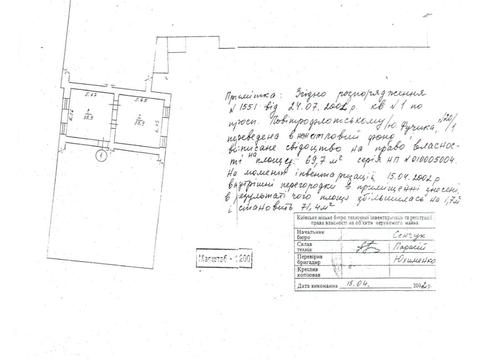 Примітка: Згідно розпорядження
N 1551 від 24.07.2002р. кв N1 по
просп. Повітрофлотському/Ю. Фучика, N 20/1
переведена в нежитловий фонд і
виписане свідоцтво на право власнос-
ті на площу 69,7 м² серія НП N010005004.
На момент інвентаризації 15.04.2002р
внутрішні перегородки в приміщенні знесені,
в результаті чого площа збільшилась на 1,7м²
і становить 71,4м²
1
Масштаб 1:200
Київське міське бюро технічної інвентаризації та реєстрації
права власності на об'єкти нерухомого майна
Начальник бюро Сенчук
Склав технік
Перевірив бригадир Юхименко
Креслив копіював
Дата виконання 15.04. 2002р.